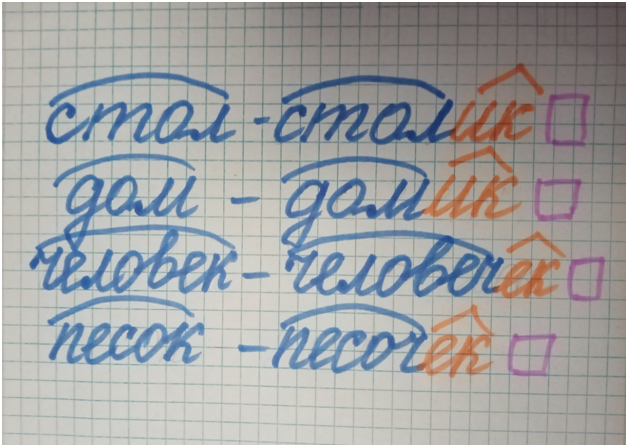 стол - столик
дом - домик
человек - человечек
песок - песочек